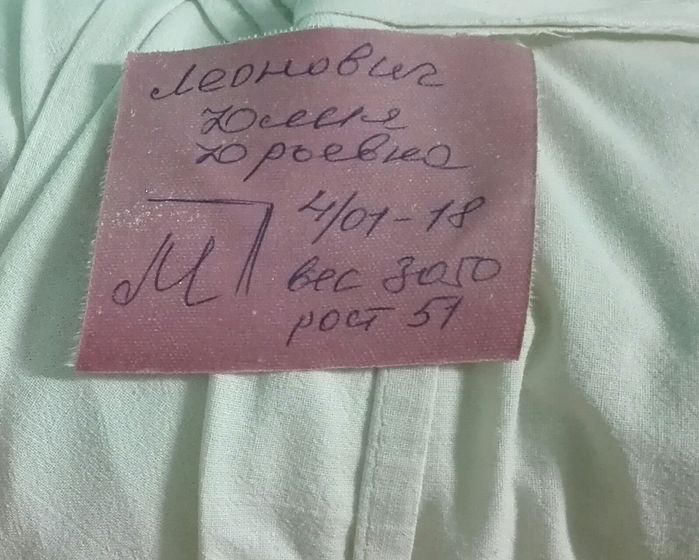 Леонович
Юлия
Юрьевна
М
4/01-18
вес 3050
рост 51